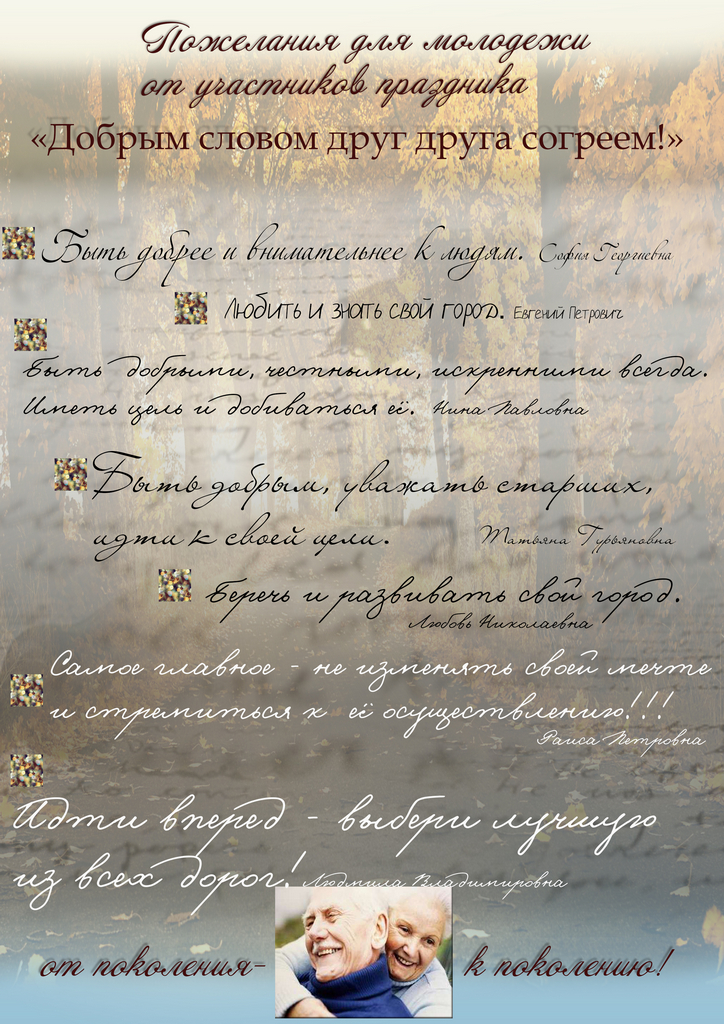 Пожелания для молодежи
от участников праздника
«Добрым словом друг друга согреем!»
Быть добрее и внимательнее к людям. София Георгиевна
Любить и знать свой город. Евгений Петрович
Быть добрыми, честными, искренними всегда.
Иметь цель и добиваться её. Нина Павловна
Быть добрым, уважать старших,
идти к своей цели. Татьяна Гурьяновна
Беречь и развивать свой город.
Любовь Николаевна
Самое главное - не изменять своей мечте
и стремиться к её осуществлению!!!
Раиса Петровна
Идти вперед - выбери лучшую
из всех дорог! Людмила Владимировна
от поколения- к поколению!